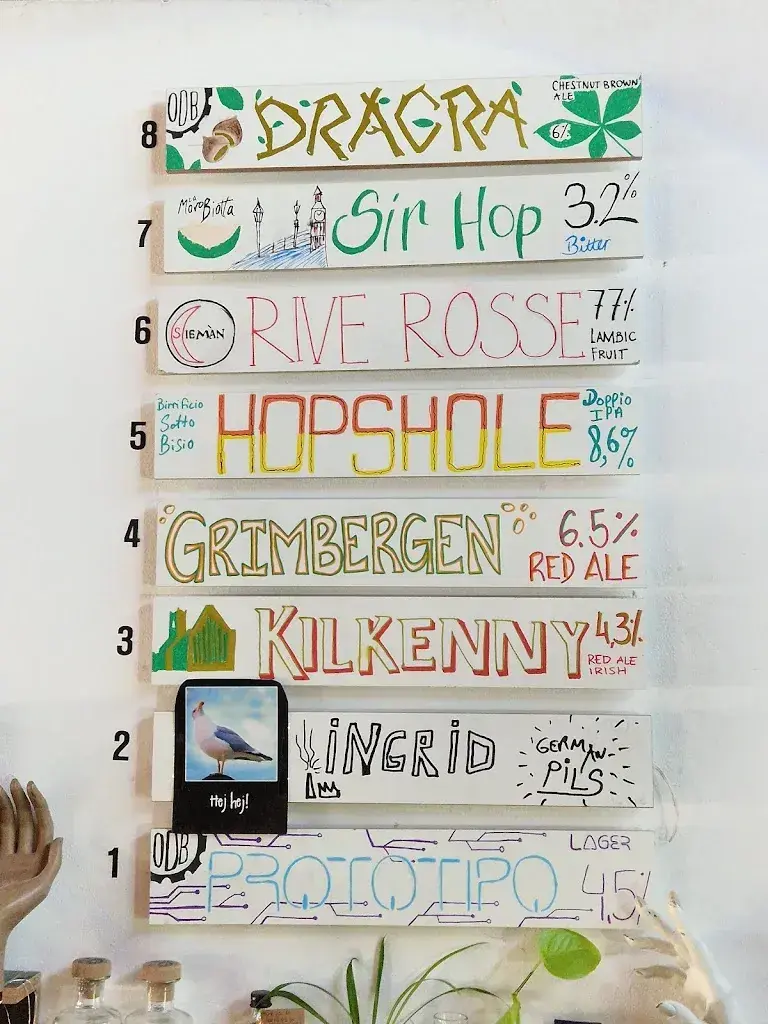 8
ODB
DRAGRA
CHESTNUT BROWN
ALE
6%
7
La
MoroBiotta
Sir Hop
3.2%
Bitter
6
SIEMÀN
RIVE ROSSE
77%
LAMBIC
FRUIT
5
Birrificio
Sotto
Bisio
HOPSHOLE
DOPPIO
IPA
8,6%
4
GRIMBERGEN
6.5%
RED ALE
3
KILKENNY
4,3%
RED ALE
IRISH
2
Hej hej!
INGRID
GERMAN
PILS
1
ODB
PROTOTIPO
LAGER
4,5%